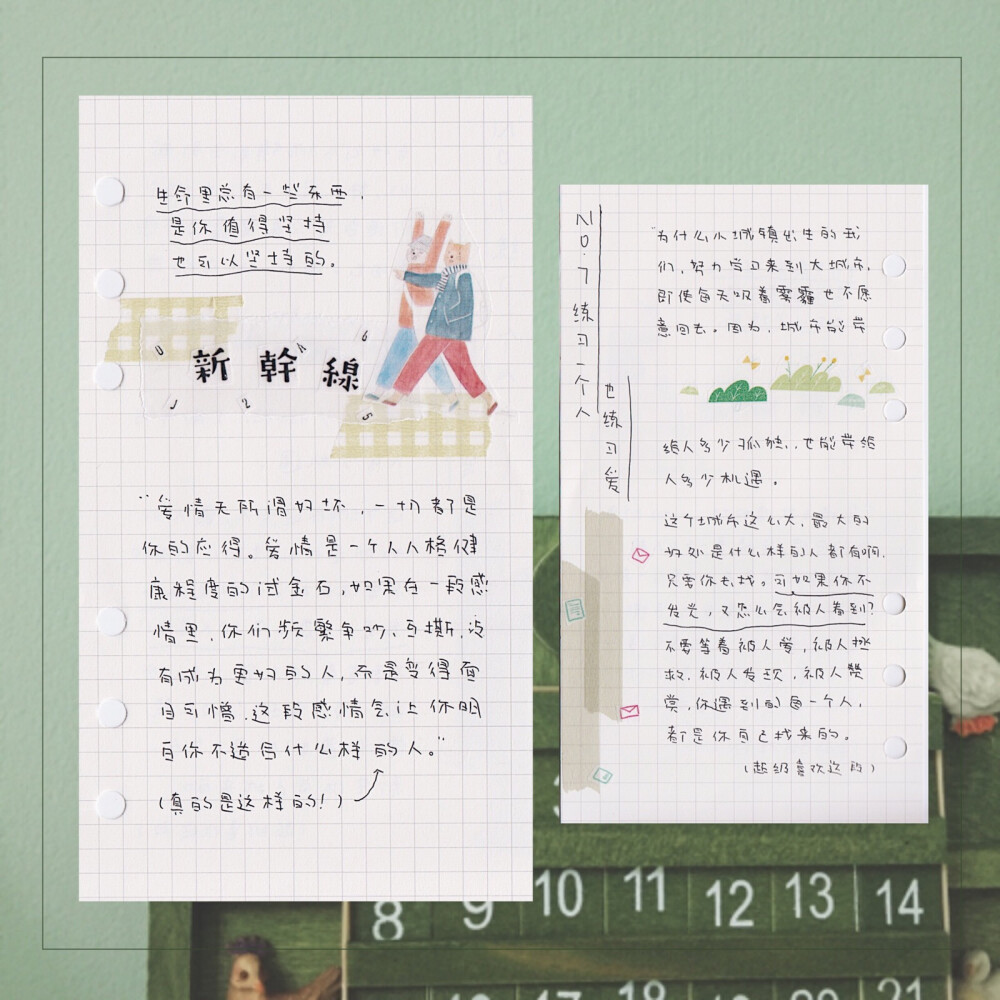 生命里总有一些东西，
是你值得坚持
也可以坚持的。
新幹線
"爱情无所谓好坏，一切都是
你的应得。爱情是一个人人格健
康程度的试金石，如果在一段感
情里，你们频繁争吵、互撕，没
有成为更好的人，而是变得面
目可憎，这段感情会让你明
白你不适合什么样的人。"
（真的是这样的！）
NO.7 练习一个人
也练习爱
"为什么小城镇出生的我
们，努力学习来到大城市，
即使每天吸着雾霾也不愿
意回去。因为，城市能带
给人多少孤独，也能带给
人多少机遇。
这个城市这么大，最大的
好处是什么样的人都有啊，
只要你去找。可如果你不
发光，又怎么会被人看到？
不要等着被人爱，被人拯
救，被人发现，被人赞
赏，你遇到的每一个人，
都是你自己找来的。
（超级喜欢这段）
8 9 10 11 12 13 14